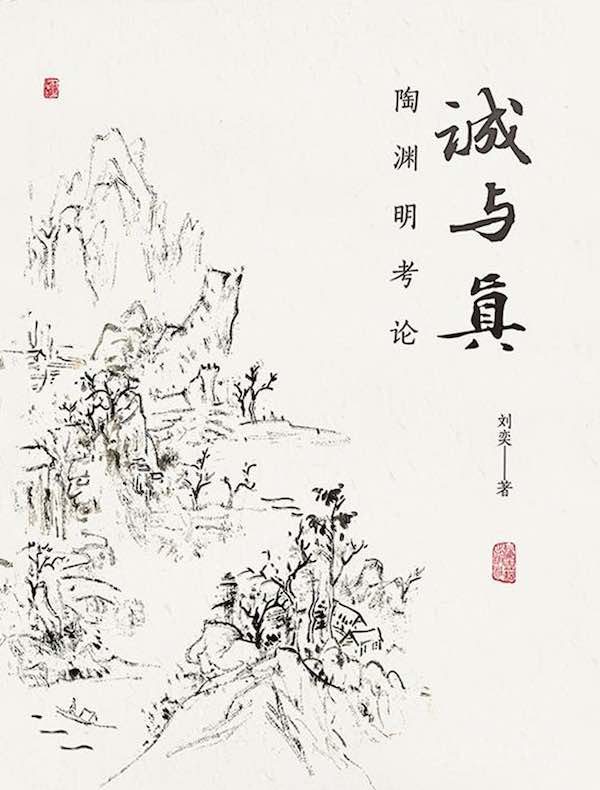 诚与真
陶渊明考论
刘奕——著